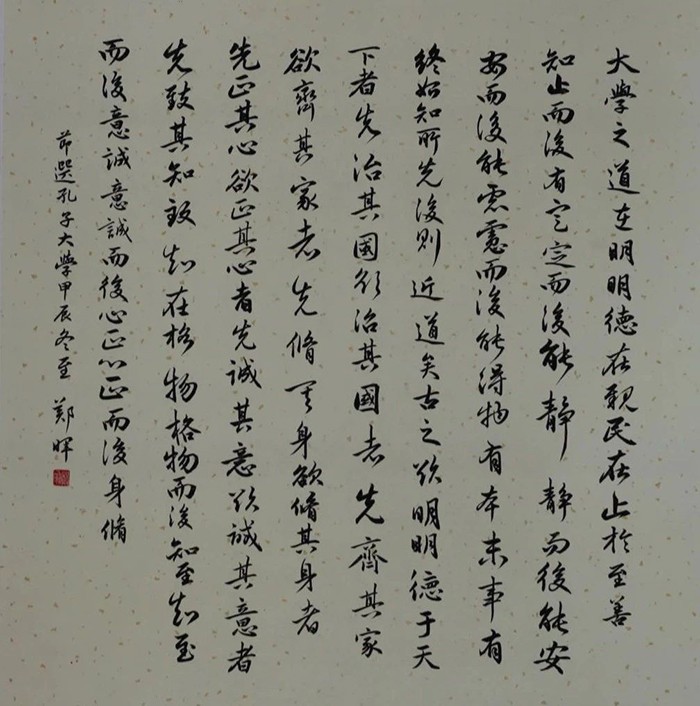 大學之道在明明德在親民在止於至善
知止而後有定定而後能靜靜而後能安
安而後能慮慮而後能得物有本末事有
終始知所先後則近道矣古之欲明明德于天
下者先治其國欲治其國者先齊其家
欲齊其家者先脩其身欲脩其身者
先正其心欲正其心者先誠其意欲誠其意者
先致其知致知在格物格物而後知至知至
而後意誠意誠而後心正心正而後身脩
節選孔子大學甲辰冬至 鄭暉